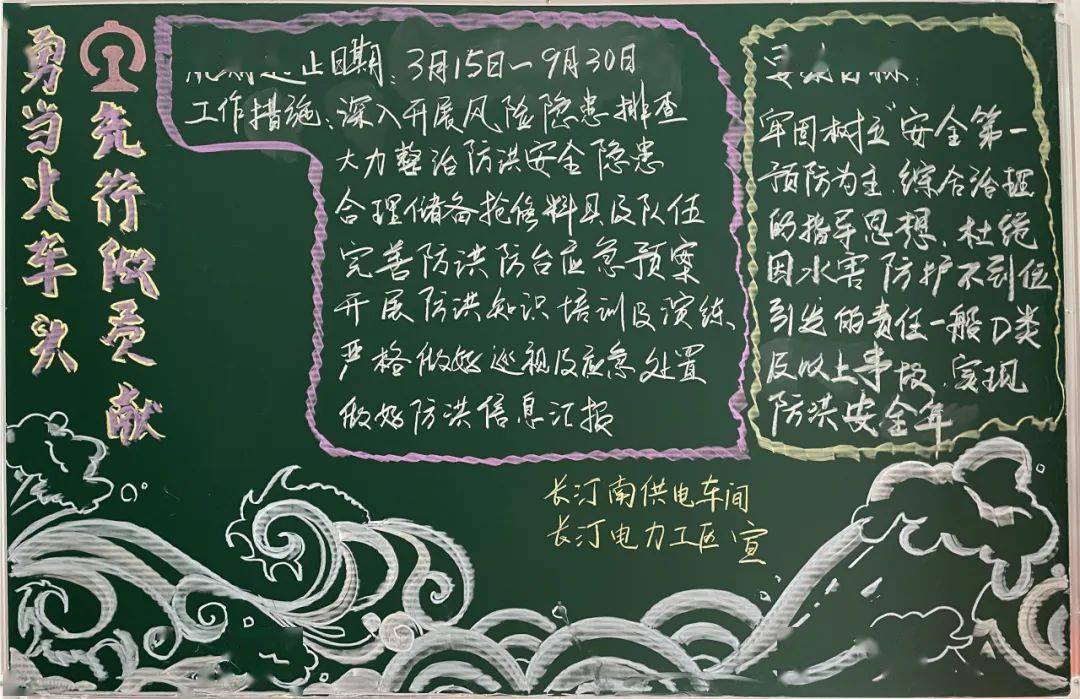 勇当火车头
先行做贡献
止日期：3月15日一9月30日
工作措施：深入开展风险隐患排查
大力整治防洪安全隐患
合理储备抢修料具及队伍
完善防洪防台应急预案
开展防洪知识培训及演练
严格做好巡视及应急处置
做好防洪信息汇报
牢固树立“安全第一
预防为主、综合治理
的指导思想，杜绝
因水害防护不到位
引发的责任一般D类
及以上事故，实现
防洪安全年
长汀南供电车间
长汀电力工区 宣